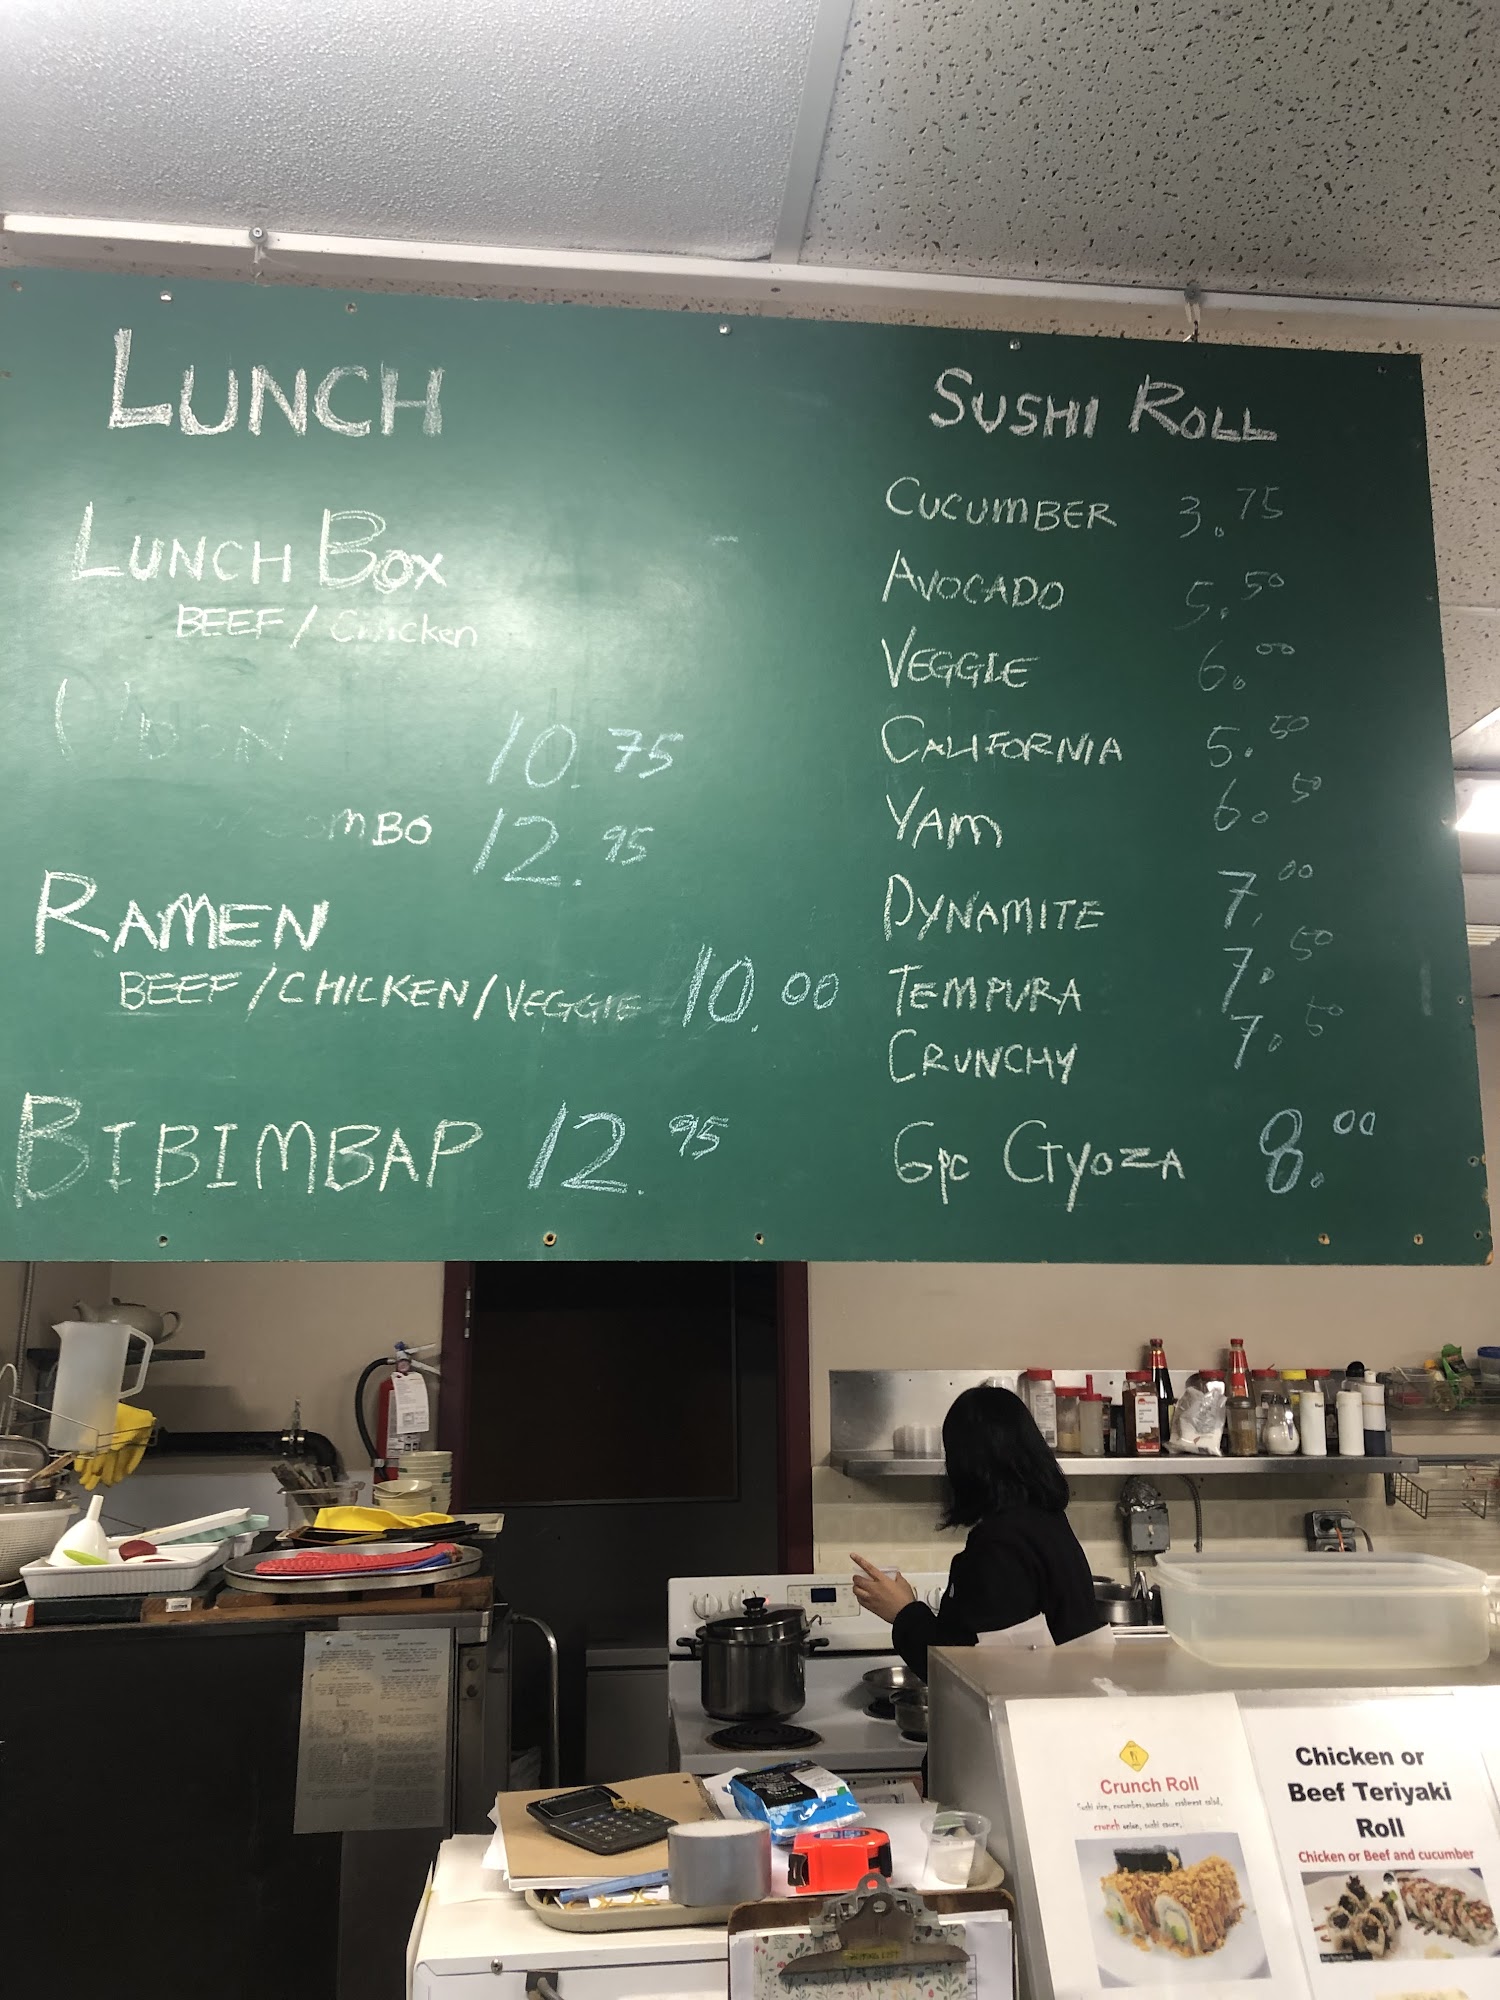 LUNCH
LUNCH BOX
BEEF / Chicken
UDON 10.75
COMBO 12.95
RAMEN
BEEF/CHICKEN/VEGGIE 10.00
BIBIMBAP 12.95
SUSHI ROLL
CUCUMBER 3.75
AVOCADO 5.50
VEGGIE 6.00
CALIFORNIA 5.50
YAM 6.50
DYNAMITE 7.00
TEMPURA 7.50
CRUNCHY 7.50
6pc GYOZA 8.00
Crunch Roll
Sushi rice, cucumber, avocado, crabmeat salad,
crunch onion, sushi sauce.
Chicken or
Beef Teriyaki
Roll
Chicken or Beef and cucumber